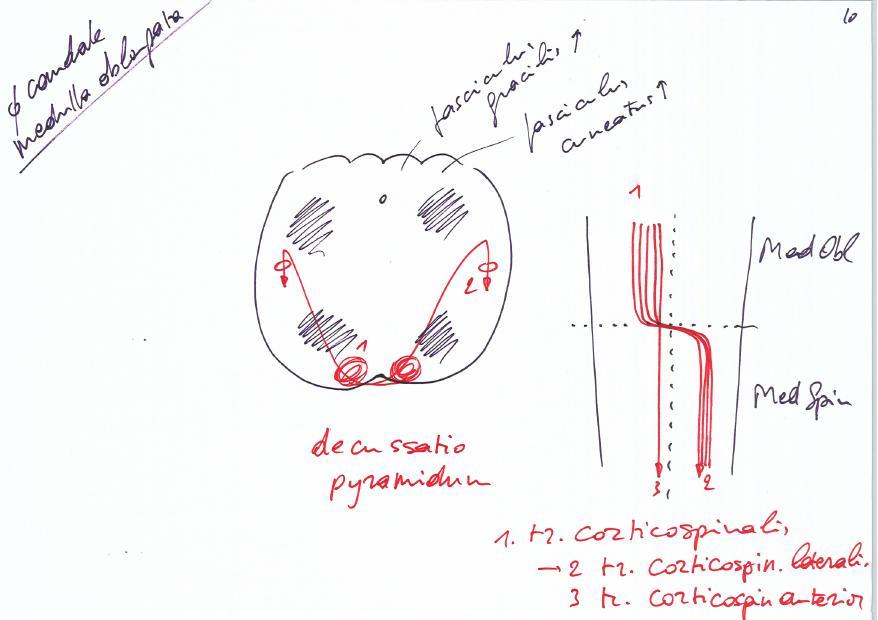 10
φ caudale
medulla oblongata
fasciculus
gracilis ↑
fasciculus
cuneatus ↑
1
Med Obl
2
1
Med Spin
3 2
decussatio
pyramidum
1. tr. corticospinalis
→ 2 tr. corticospin. lateralis
3 tr. corticospin anterior